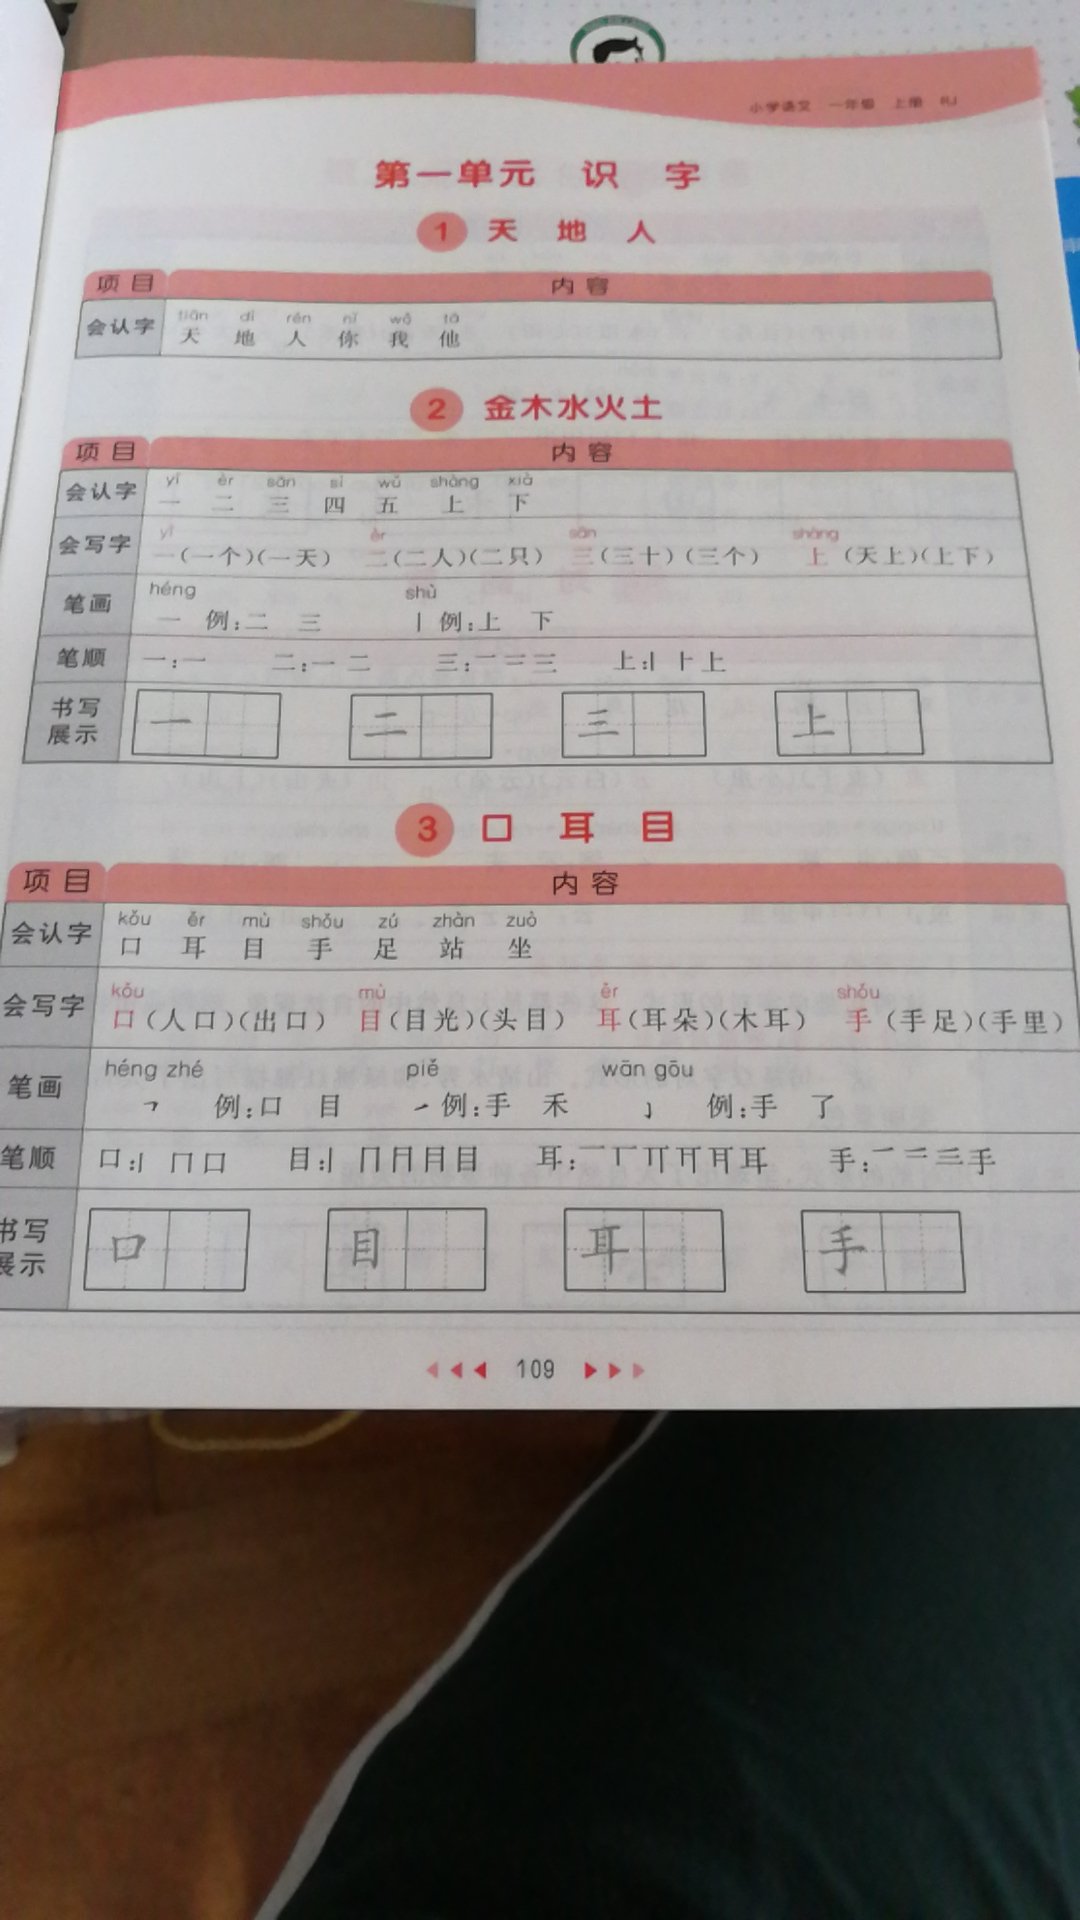 小学语文 一年级 上册 RJ
第一单元 识 字
1 天 地 人
项目 内容
tiān dì rén nǐ wǒ tā
会认字 天 地 人 你 我 他
2 金木水火土
项目 内容
yī èr sān sì wǔ shàng xià
会认字 一 二 三 四 五 上 下
yī èr sān shàng
会写字 一(一个)(一天) 二(二人)(二只) 三(三十)(三个) 上(天上)(上下)
héng shù
笔画 一 例:二 三 丨 例:上 下
笔顺 一:一 二:一 二 三:一 二 三 上:丨 ⺊ 上
书写展示 一 二 三 上
3 口 耳 目
项目 内容
kǒu ěr mù shǒu zú zhàn zuò
会认字 口 耳 目 手 足 站 坐
kǒu mù ěr shǒu
会写字 口(人口)(出口) 目(目光)(头目) 耳(耳朵)(木耳) 手(手足)(手里)
héng zhé piě wān gōu
笔画 ㇕ 例:口 目 ㇀ 例:手 禾 ㇁ 例:手 了
笔顺 口:丨 冂 口 目:丨 冂 月 目 耳: 一 丅 丌 耳 手: 一 二 三 手
书写展示 口 目 耳 手
109